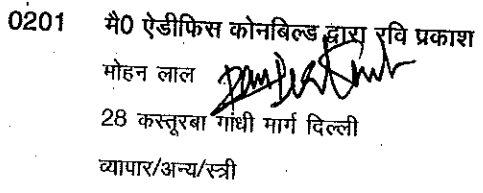 0201 मै0 ऐडीफिस कोनबिल्ड द्वारा रवि प्रकाश
मोहन लाल
28 कस्तूरबा गांधी मार्ग दिल्ली
व्यापार/अन्य/स्त्री